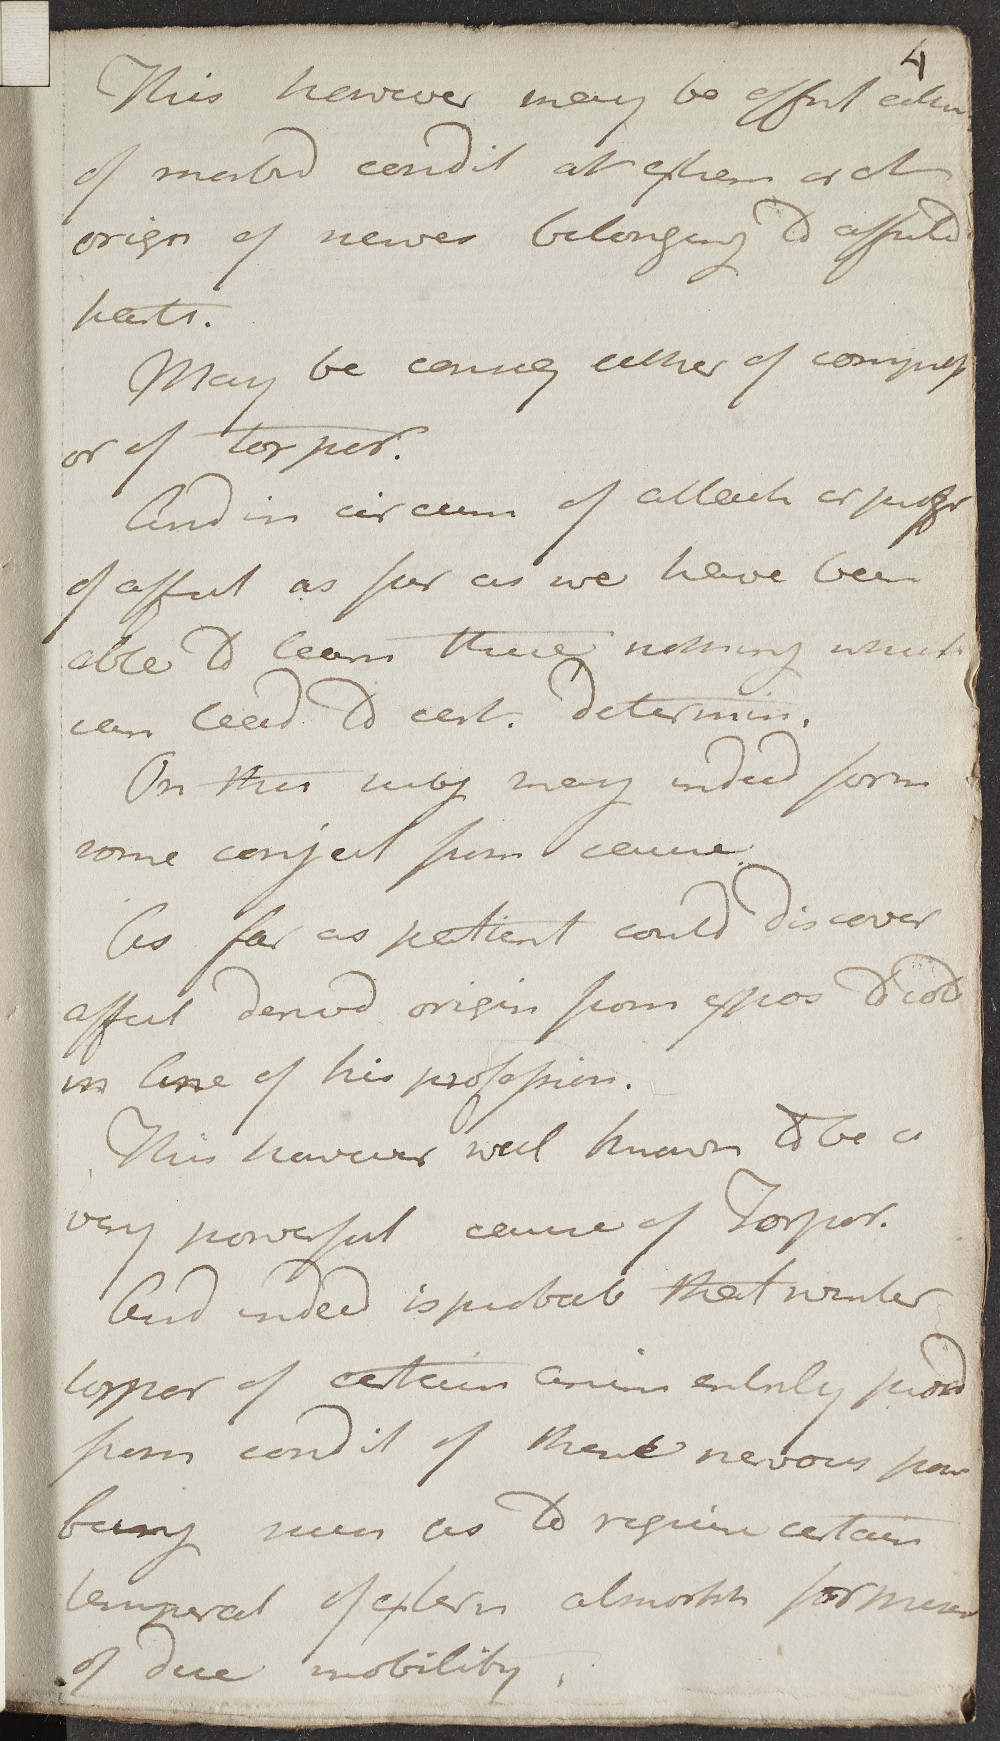 4
This however may be effect either
of morbd condit at extrem or at
origin of nerves belonging to affectd
parts.
May be conseq either of compress
or of torpor.
And in circum of attack or progr
of affect as far as we have been
able to learn there nothing which
can lead to cert. determin.
On this subj may indeed form
some conject from cause.
As far as patient could discover
affect derivd origin from expos to cold
in line of his profession.
This however well known to be a
very powerful cause of Torpor.
And indeed is probab that winter
torpor of certain anim entirely proced
from condit of their nervous pow
being such as to require certain
temperat of extern atmosph for
of due mobility.